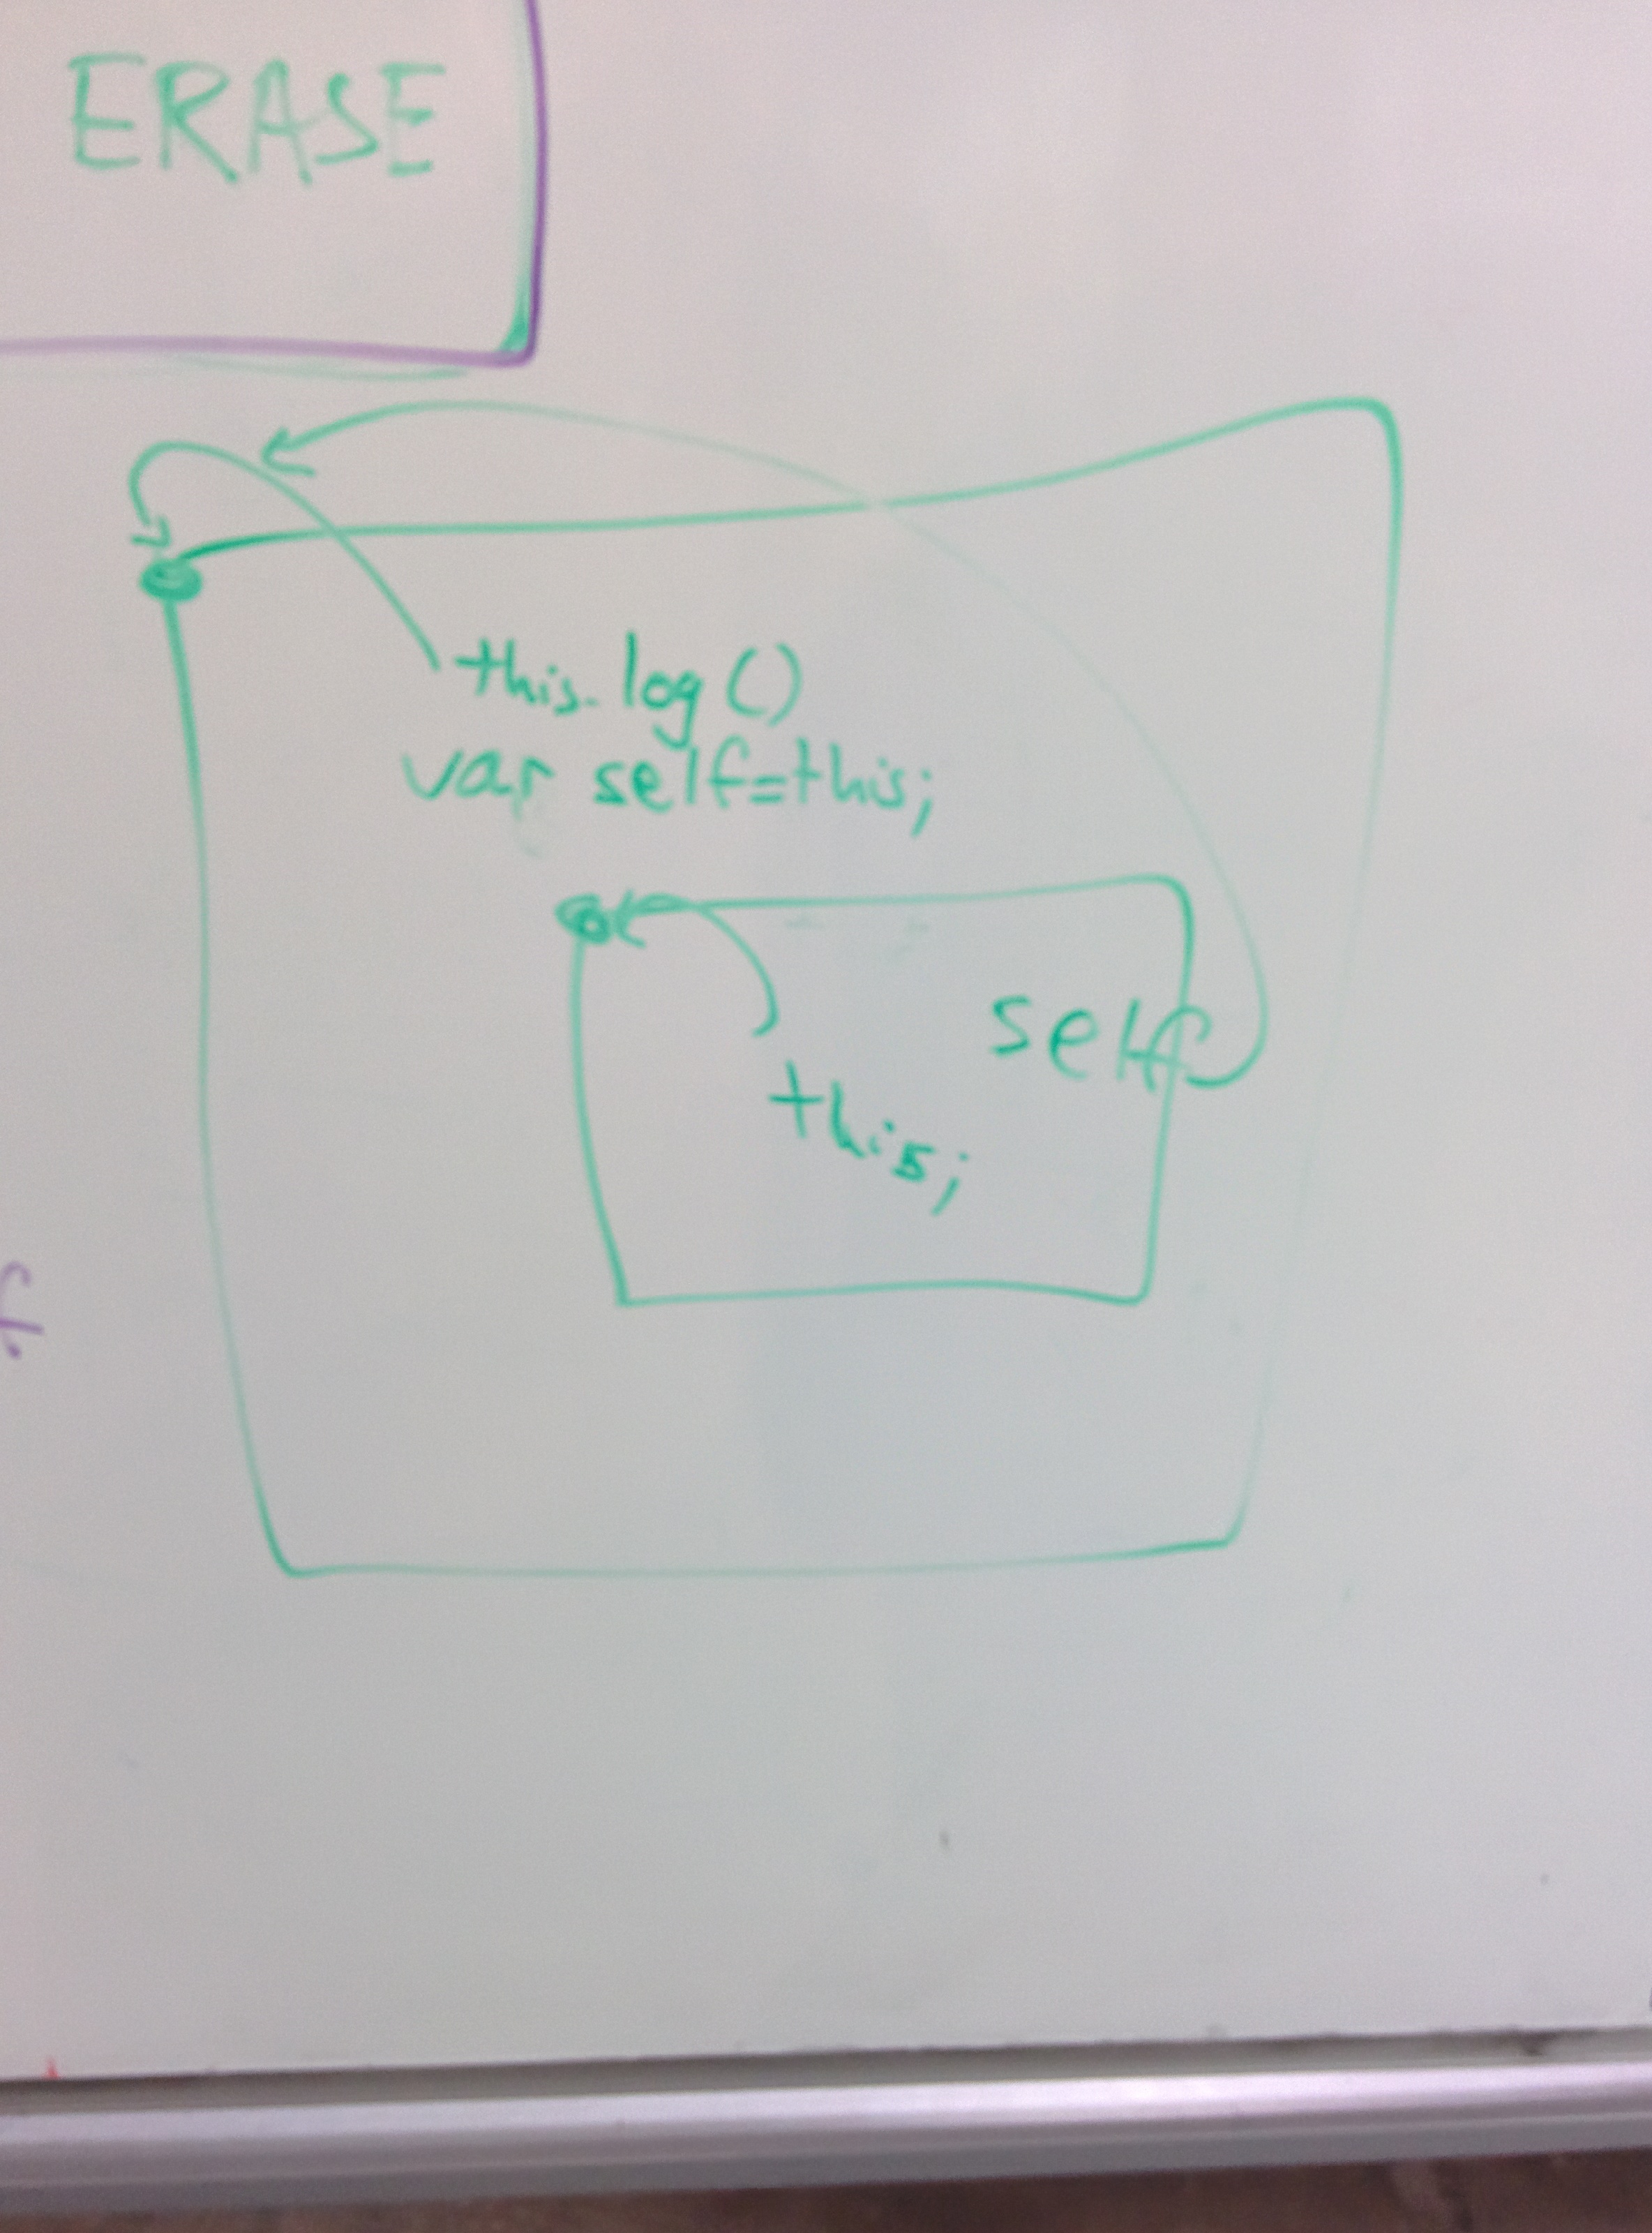 ERASE
this.log()
var self=this;
self
this;
f